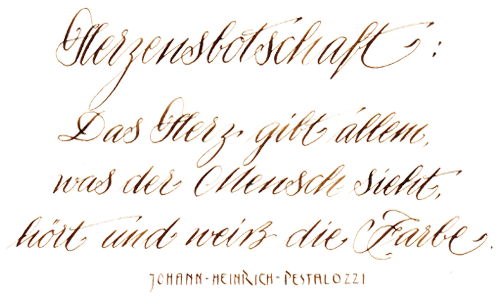 Herzensbotschaft:
Das Herz gibt allem,
was der Mensch sieht,
hört und weiß die Farbe.
JOHANN-HEINRICH-PESTALOZZI